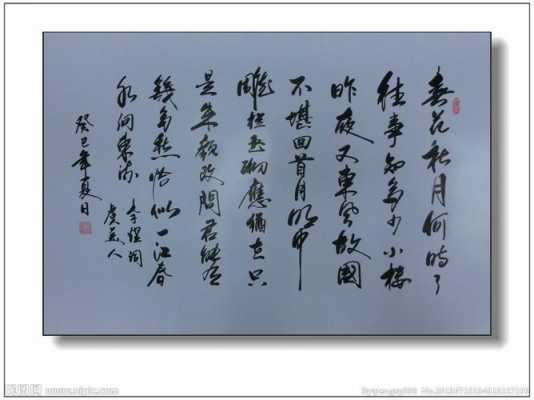 春花秋月何時了
往事知多少小樓
昨夜又東風故國
不堪回首月明中
雕欄玉砌應猶在只
是朱顏改問君能有
幾多愁恰似一江春
水向東流 李煜詞
虞美人
癸巳年夏日
昵图网 www.nipic.com